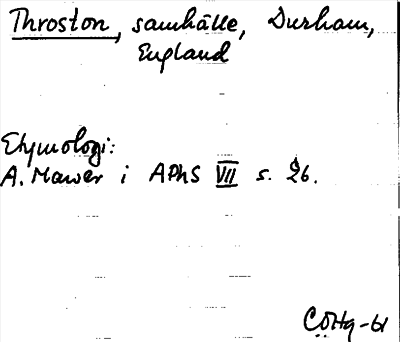 Throston, samhälle, Durham,
England
Etymologi:
A. Mawer i APhS VII s. 26.
CÖHg-61